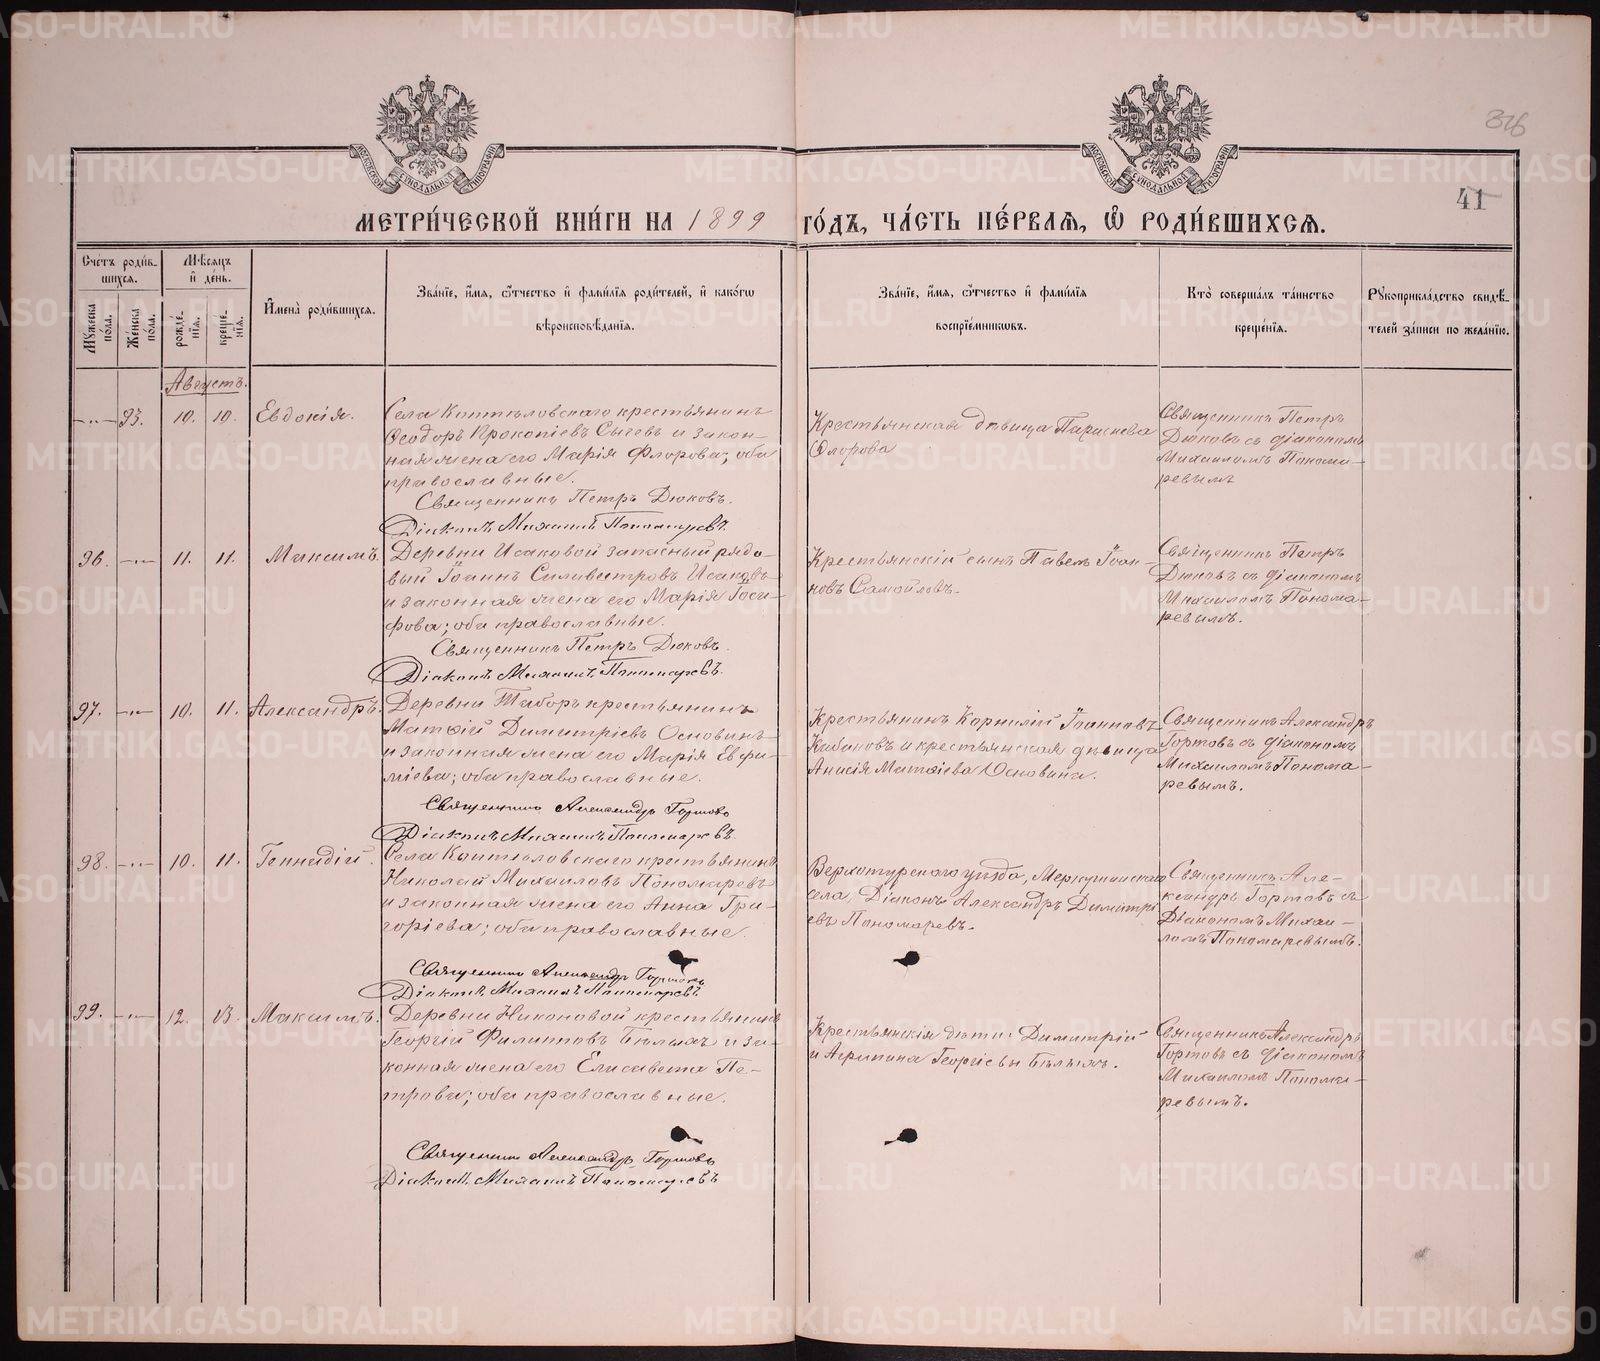 326
41
МЕТРИ́ЧЕСКОЙ КНИ́ГИ НА 1899 ГО́ДЪ, ЧА́СТЬ ПЕ́РВАЯ, Ѡ РОДИ́ВШИХСЯ.
Сче́тъ роди́вшихся.
Мѣ́сяцъ и де́нь.
Му́жеска по́ла.
Же́нска по́ла.
рожде́нїя.
креще́нїя.
Имена̀ роди́вшихся.
Зва́нїе, и́мя, ѻ́тчество и фами́лїя роди́телей, и како́гѡ
вѣроисповѣ́данїя.
Зва́нїе, и́мя, ѻ́тчество и фами́лїя
воспрїе́мниковъ.
Кто̀ соверша́лъ та́инство
креще́нїя.
Рукоприкла́дство свидѣ́телей за́писи по жела́нїю.
Августъ.
—"— 93. 10. 10. Евдокія.
Села Коптѣловскаго крестьянинъ
Ѳеодоръ Прокопіевъ Сычевъ и закон-
ная жена его Марія Флорова; оба
православные.
Священникъ Петръ Дюковъ.
Діаконъ Михаилъ Пономаревъ.
Крестьянская дѣвица Параскева
Флорова
Священникъ Петръ
Дюковъ съ діакономъ
Михаиломъ Понома-
ревымъ
96. —"— 11. 11. Максимъ.
Деревни Исаковой запасный рядо-
вый Іоаннъ Силивестровъ Исаковъ
и законная жена его Марія Іоси-
фова; оба православные.
Священникъ Петръ Дюковъ.
Діаконъ Михаилъ Пономаревъ.
Крестьянскій сынъ Павелъ Іоан-
новъ Самойловъ.
Священникъ Петръ
Дюковъ съ діакономъ
Михаиломъ Понома-
ревымъ.
97. —"— 10. 11. Александръ.
Деревни Таборъ крестьянинъ
Матѳій Димитріевъ Основинъ
и законная жена его Марія Евфи-
міева; оба православные.
Священникъ Александръ Гортовъ
Діаконъ Михаилъ Пономаревъ.
Крестьянинъ Корнилій Іоанновъ
Кабаковъ и крестьянская дѣвица
Анисія Матѳіева Основина.
Священникъ Александръ
Гортовъ съ діакономъ
Михаиломъ Понома-
ревымъ.
98. —"— 10. 11. Геннадій.
Села Коптѣловскаго крестьянинъ
Николай Михаиловъ Пономаревъ
и законная жена его Анна Гри-
горіева; оба православные.
Священникъ Александръ Гортовъ
Діаконъ Михаилъ Пономаревъ
Верхотурскаго уѣзда, Меркушинскаго
села, Діаконъ Александръ Димитрі-
евъ Пономаревъ.
Священникъ Але-
ксандръ Гортовъ съ
Діакономъ Михаи-
ломъ Пономаревымъ.
99. —"— 12. 13. Максимъ.
Деревни Никоновой крестьянинъ
Георгій Филипповъ Бѣлыхъ и за-
конная жена его Елисавета Пе-
трова; оба православные.
Священникъ Александръ Гортовъ
Діаконъ Михаилъ Пономаревъ
Крестьянскія дѣти: Димитрій
и Агрипина Георгіевы Бѣлыхъ.
Священникъ Александръ
Гортовъ съ діакономъ
Михаиломъ Понома-
ревымъ.